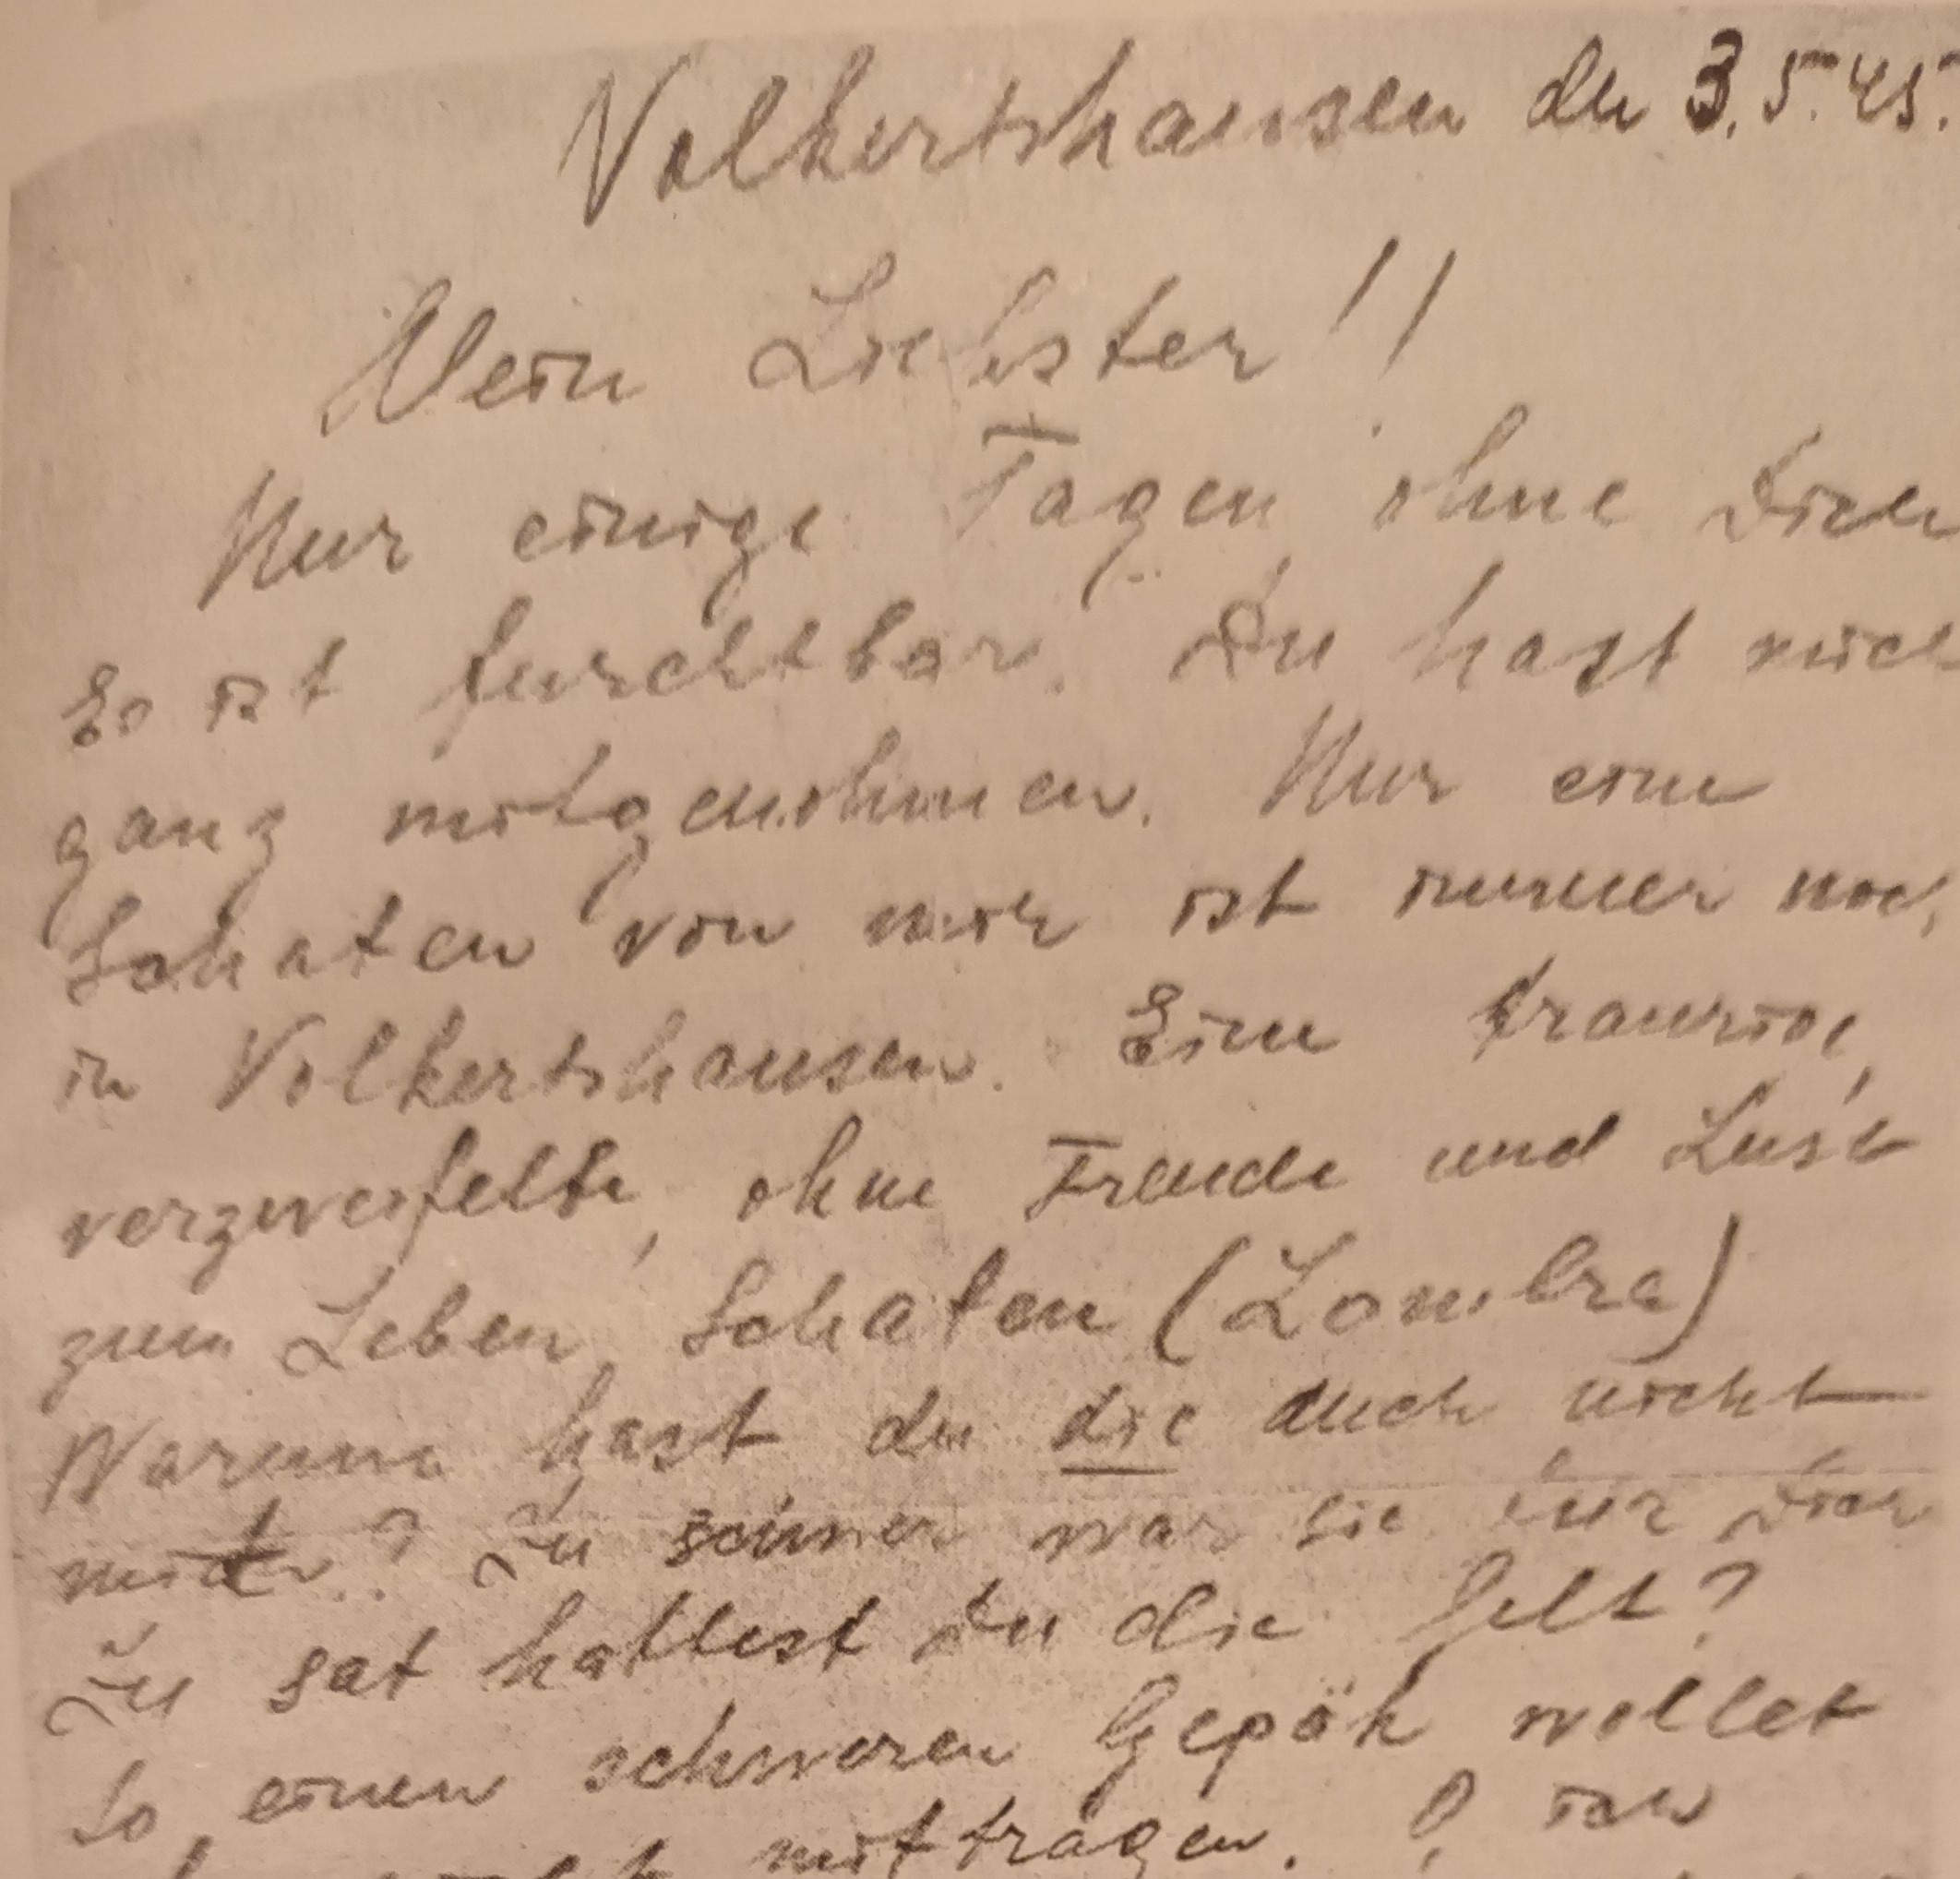 Volkertshausen den 3.5.45.
Mein Liebster!!
Nur einige Tagen ohne Dich
Es ist furchtbar. Du hast mich
ganz mitgenohmen. Nur eine
Schaten von mir ist immer noch
in Volkertshausen. Eine traurige,
verzweifelte, ohne Freude und Lust
zum Leben, Schaten (Lombra)
Warum hast du die auch nicht
mit? Zu schwer war sie für Dich
Zu sat hattest Du die Selt?
So, einen schweren Gepäk wollet
mittragen. ich